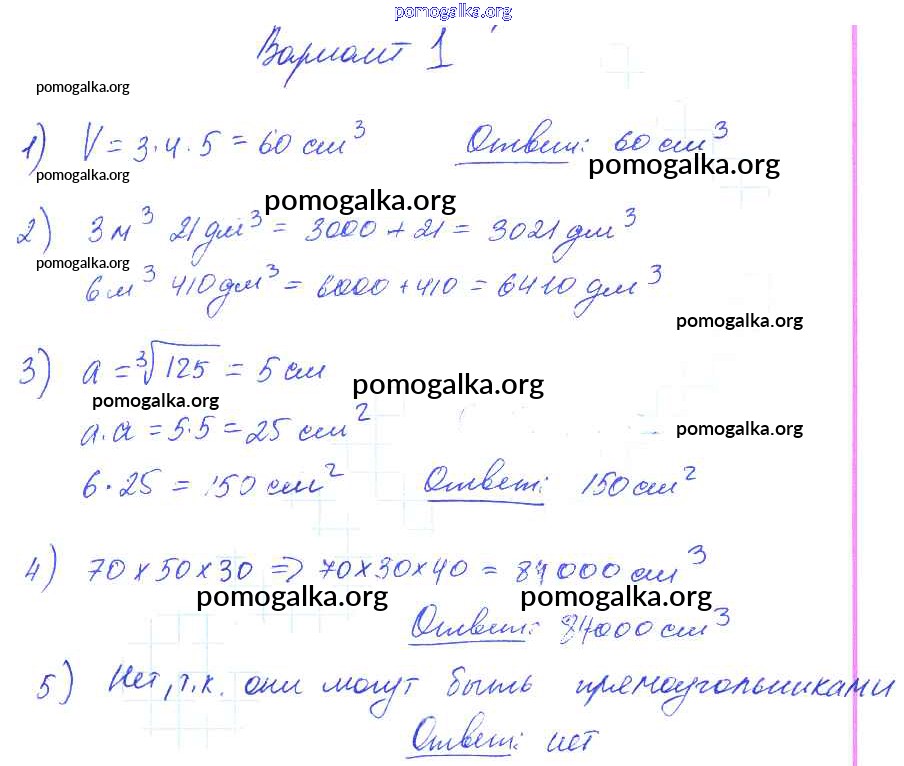 pomogalka.org
Вариант 1
pomogalka.org
1) V = 3·4·5 = 60 см³ Ответ: 60 см³
pomogalka.org pomogalka.org
pomogalka.org
2) 3 м³ 21 дм³ = 3000 + 21 = 3021 дм³
pomogalka.org
6 м³ 410 дм³ = 6000 + 410 = 6410 дм³
pomogalka.org
3) a = ³√125 = 5 см
pomogalka.org
pomogalka.org
a·a = 5·5 = 25 см²
pomogalka.org
6·25 = 150 см² Ответ: 150 см²
4) 70×50×30 => 70×30×40 = 84000 см³
pomogalka.org pomogalka.org
Ответ: 84000 см³
5) Нет, т.к. они могут быть прямоугольниками
Ответ: нет